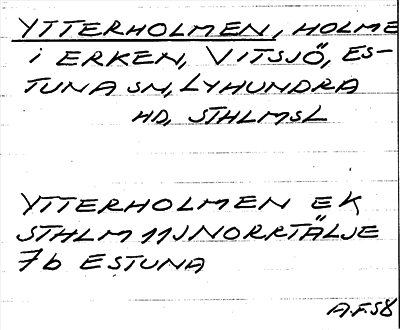 YTTERHOLMEN, HOLME
i ERKEN, VITSJÖ, ES-
TUNA SN, LYHUNDRA
HD, STHLMSL
YTTERHOLMEN EK
STHLM 11J NORRTÄLJE
7b ESTUNA
A.F.58